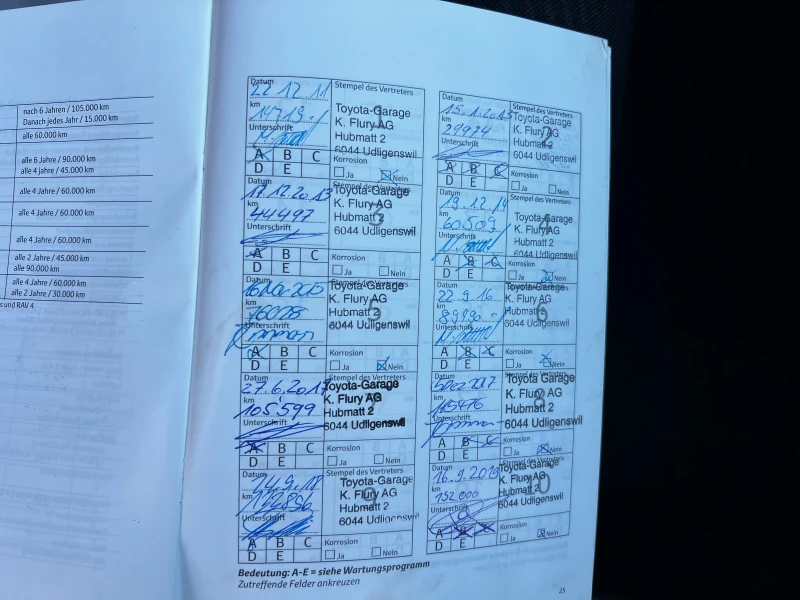 nach 6 Jahren / 105.000 km
Danach jedes Jahr / 15.000 km
alle 60.000 km
alle 6 Jahre / 90.000 km
alle 4 Jahre / 45.000 km
alle 4 Jahre / 60.000 km
alle 4 Jahre / 60.000 km
alle 4 Jahre / 60.000 km
alle 2 Jahre / 45.000 km
alle 90.000 km
alle 4 Jahre / 60.000 km
alle 2 Jahre / 30.000 km
s und RAV 4
Datum
22 12 11
km
14719.-
Unterschrift
Stempel des Vertreters
Toyota-Garage
K. Flury AG
Hubmatt 2
6044 Udligenswil
A B C
D E
Korrosion
Ja Nein
Datum
15.1.2013
km
29924
Unterschrift
Stempel des Vertreters
Toyota-Garage
K. Flury AG
Hubmatt 2
6044 Udligenswil
A B C
D E
Korrosion
Ja Nein
Datum
17.12.2013
km
44497
Unterschrift
Stempel des Vertreters
Toyota-Garage
K. Flury AG
Hubmatt 2
6044 Udligenswil
A B C
D E
Korrosion
Ja Nein
Datum
19.12.14
km
60509
Unterschrift
Stempel des Vertreters
Toyota-Garage
K. Flury AG
Hubmatt 2
6044 Udligenswil
A B C
D E
Korrosion
Ja Nein
Datum
km
76028
Unterschrift
Stempel des Vertreters
Toyota-Garage
K. Flury AG
Hubmatt 2
6044 Udligenswil
A B C
D E
Korrosion
Ja Nein
Datum
22.9.16
km
89990.-
Unterschrift
Stempel des Vertreters
Toyota-Garage
K. Flury AG
Hubmatt 2
6044 Udligenswil
A B C
D E
Korrosion
Ja Nein
Datum
27.6.2017
km
105.599
Unterschrift
Stempel des Vertreters
Toyota-Garage
K. Flury AG
Hubmatt 2
6044 Udligenswil
A B C
D E
Korrosion
Ja Nein
Datum
km
115476
Unterschrift
Stempel des Vertreters
Toyota-Garage
K. Flury AG
Hubmatt 2
6044 Udligenswil
8
A B C
D E
Korrosion
Ja Nein
Datum
km
Unterschrift
Stempel des Vertreters
Toyota-Garage
K. Flury AG
Hubmatt 2
6044 Udligenswil
A B C
D E
Korrosion
Ja Nein
Datum
16.9.2019
km
152000
Unterschrift
Stempel des Vertreters
Toyota-Garage
K. Flury AG
Hubmatt 2
6044 Udligenswil
10
A B C
D E
Korrosion
Ja Nein
Bedeutung: A-E = siehe Wartungsprogramm
Zutreffende Felder ankreuzen
25